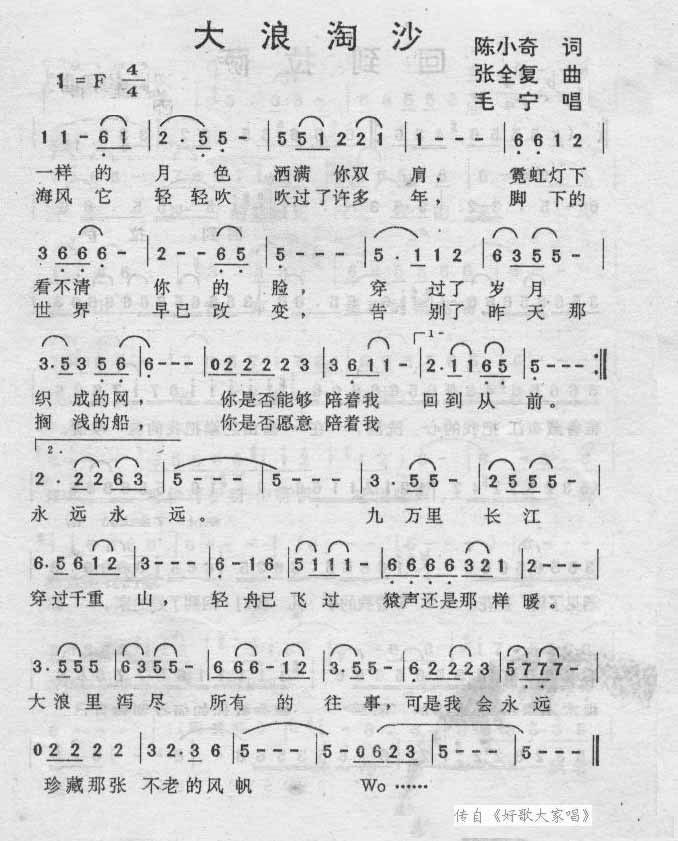 大浪淘沙
陈小奇 词
张全复 曲
毛宁 唱
1=F 4/4
1 1 - 6 1 | 2 5 5 - | 5 5 1 2 2 1 | 1 - - - | 6 6 1 2
一样的 月色 洒满你双 肩， 霓虹灯下
海风它 轻轻吹 吹过了许多 年， 脚下的
3 6 6 6 | 2 - - 6 5 | 5 - - - | 5 . 1 1 2 | 6 3 5 5 -
看不清 你的 脸， 穿过了 岁月
世界 早已改 变， 告别了 昨天那
3 . 5 3 5 6 | 6 - - - | 0 2 2 2 2 2 3 | 3 6 1 1 | 1- 2 . 1 1 6 5 | 5 - - - :‖
织成的网， 你是否能够 陪着我 回到从 前。
搁浅的船 你是否愿意 陪着我
2.
2 . 2 2 6 3 | 5 - - - | 5 - - - | 3 . 5 5 5 | 2 5 5 5 -
永远永 远。 九万里 长江
6 . 5 6 1 2 | 3 - - - | 6 - 1 6 | 5 1 1 1 - | 6 6 6 6 3 2 1 | 2 - - -
穿过千重 山， 轻舟已 飞过 猿声还是那样 暖。
3 . 5 5 5 | 6 3 5 5 - | 6 6 6 - 1 2 | 3 . 5 5 - | 6 2 2 2 3 | 5 7 7 7 -
大浪里 泻尽 所有的 往事， 可是我 会永远
0 2 2 2 2 | 3 2 . 3 6 | 5 - - - | 5 - 0 6 2 3 | 5 - - - | 5 - - - ‖
珍藏那张 不老的风 帆 Wo ……
传自《好歌大家唱》